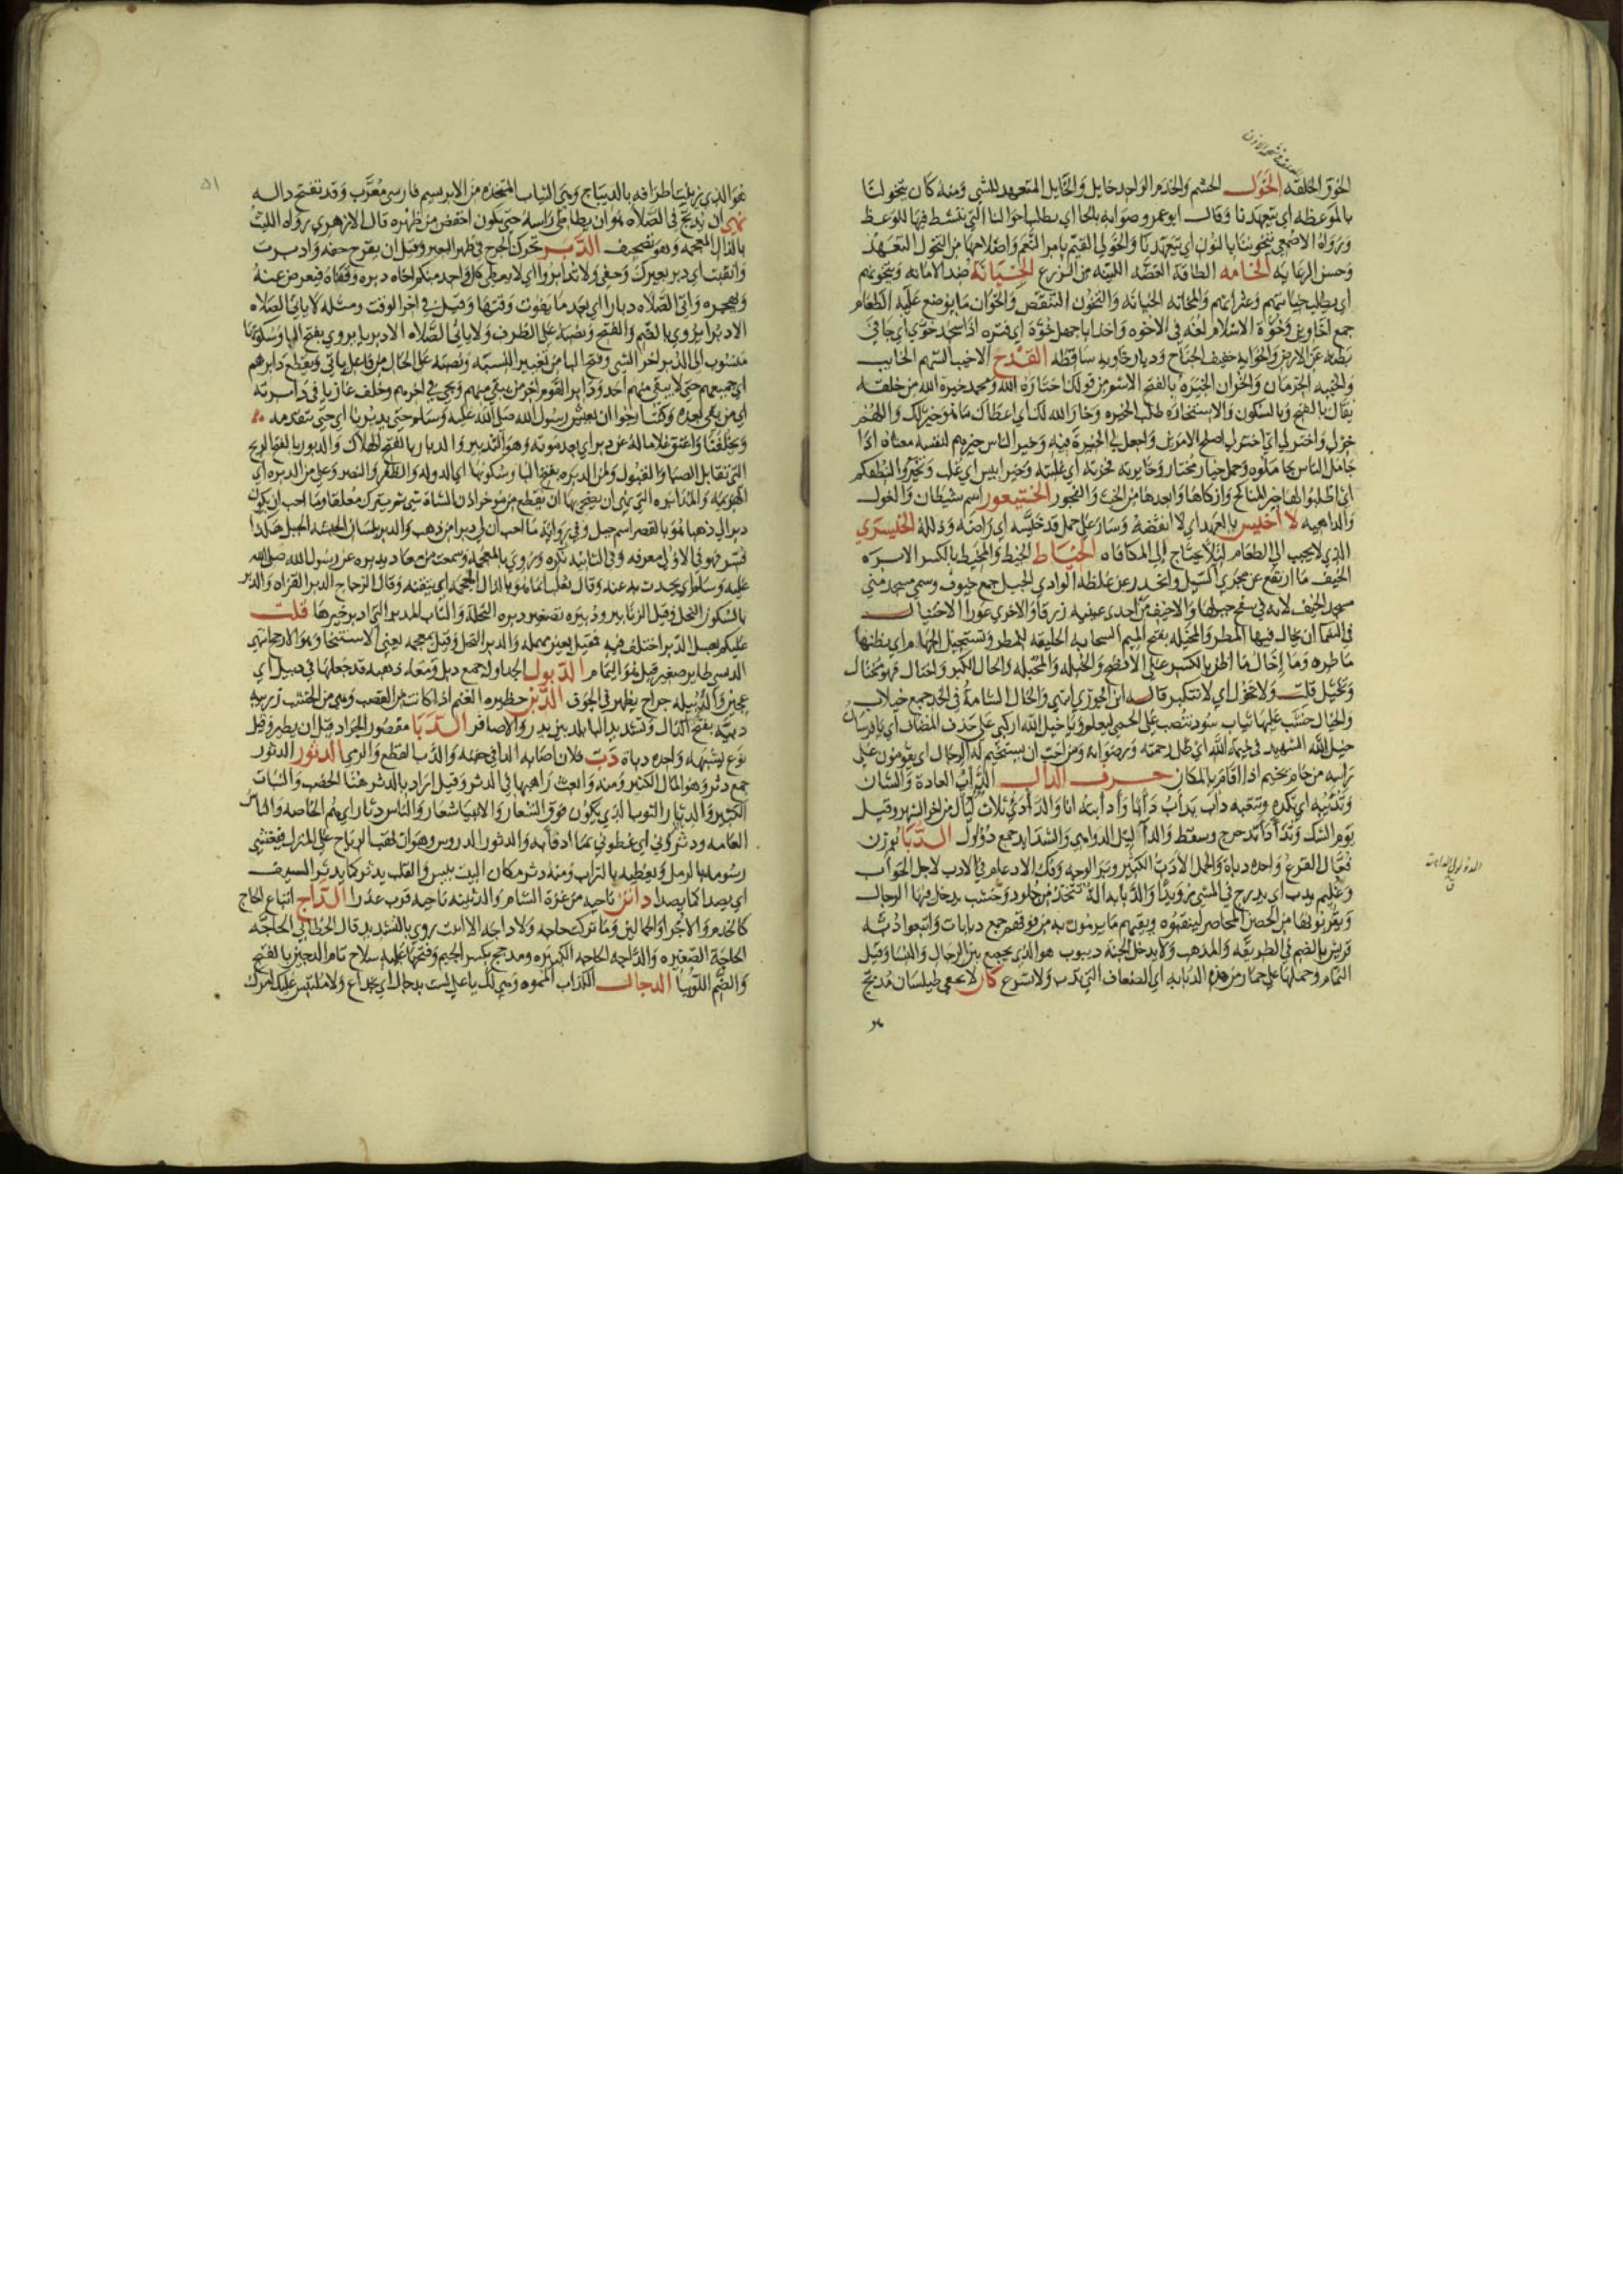 الخوق الحلقة الخول الحشم والخدم الواحد خايل والخايل المتعهد للشى ومنه كان يتخولنا
بالموعظه اى يتعهدنا وقال ابو عمرو صوابه بالحا اى يطلب احوالنا التى ننشط فيها للوعظ
ورواه الاصمعى يتخوننا بالنون اى يتعهدنا والخولى القيم بامر النعم واصلاحها من التخول التعهد
وحسن الرعايه الخامه الطاقة الغضه اللينه من الزرع الخيانة ضد الامانه ويتخونهم
اى يطلب خيانتهم وعثراتهم والمخانه الخيانه والتخون التنقص والخوان ما يوضع عليه الطعام
جمع اخاوين وخوة الاسلام لغه فى الاخوه واخذ اباجهل خوة اى فتره اذا سجد خوى اى جافى
بطنه عن الارض والخوايه خفيف الجناح وديار خاويه ساقطه القدح الاخيب السهم الخايب
والخيبه الحرمان والخسران الخيرة بالفتح الاسم من قولك اختاره الله ومحمد خيرة الله من خلقه
يقال بالفتح وبالسكون والاستخاره طلب الخيره وخار الله لك اى اعطاك ما هو خير لك واللهم
خر لى واختر لى اى اختر لى اصلح الامرين واجعل لى الخيرة فيه وخير الناس خيرهم لنفسه معناه اذا
جامل الناس جاملوه وجمل خيار مختار وخايرته فخرته اى غلبته وخير انيس اى غلب وتخيروا لنطفكم
اى اطلبوا لها خير المناكح وازكاها وابعدها من الخبث والفجور الخيتعور اسم شيطان والغول
والداهيه لا اخيس بالعهد اى لا انقضه وسار على جمل قد خيسه اى راضه وذلله الخيسرى
الذى لا يجيب الى الطعام ليلا يحتاج الى المكافاه الخياط الخيط والمخيط بالكسر الابره
الخيف ما ارتفع عن مجرى السيل وانحدر عن غلظه الوادى الجبل جمع خيوف وسمى مسجد منى
مسجد الخيف لانه فى سفح جبلها والاخيف من احدى عينيه زرقا والاخرى عورا الاختيال
ماطره وما إخال ما اظن بالكسر على الافصح والخيله والمخيله والخال الكبر واختال فهو مختال
وتخيل قلت ولا تخول اى لا تتكبر قاله ابن الجوزى انتهى والخال الشامة فى الخد جمع خيلان
والخيال خشب عليها ثياب سود تنصب على الحمى ليعلموا ويا خيل الله اركبى على حذف المضاف اى يا فرسان
خيل الله الشهيد فى خيمة الله اى ظل رحمته ورضوانه ومن احب ان يستخيم له الرجال اى يقومون على
راسه من خام يخيم اذا اقام بالمكان حرف الدال الدأب العادة والشان
وتدئبه اى تكده وتتعبه دأب يدأب دأبا وأدأبته انا والدأدئ ثلاث ليال من اخر الشهر وقيل
يوم الشك وتدأدأ تدحرج وسقط والدآليل الدواهى والشدايد جمع دؤلول الدبا بوزن
فعال القرع واحده دباة والجمل الادبب الكثير وبر الوجه وفك الادغام فى الادب لاجل الحوأب
وغليم يدب اى يدرج فى المشى رويدا والدبابه الة تتخذ من جلود وخشب يدخل فيها الرجال
ويقربونها من الحصن المحاصر لينقبوه ويقيهم ما يرمون به من فوقهم جمع دبابات واتبعوا دبة
قريش بالضم فى الطريقه والمذهب ولا يدخل الجنة ديبوب هو الذى يجمع بين الرجال والنسا وقيل
النمام وحملها على حمار من هذه الدبابه اى الضعاف التى تدب ولا تسرع كان لا يخفى طيلسان مدبج
هو الذى زينت اطرافه بالديباج وهى الثياب المتخذه من الابريسم فارسى معرب وقد تفتح داله
نهى ان يدبح فى الصلاه هو ان يطاطى راسه حتى يكون اخفض من ظهره قال الازهرى رواه الليث
بالذال المعجمه وهو تصحيف الدبر تحرك الجرح فى ظهر البعير وقيل ان يقرح خفه وادبرت
وانقبت اى دبر بعيرك وحفى ولا تدابروا اى لا يعطى كل واحد منكم اخاه دبره وقفاه فيعرض عنه
ويهجره واتى الصلاه دبارا اى بعد ما يفوت وقتها وقيل فى اخر الوقت ومثله لا ياتى الصلاه
الا دبرا يروى بالضم والفتح ونصبه على الظرف ولا ياتى الصلاه الا دبريا يروى بفتح البا وسكونها
منسوب الى الدبر اخر الشى وفتح البا من تغيير النسبه ونصبه على الحال من فاعل ياتى ويقطع دابرهم
اى جميعهم حتى لا يبقى منهم احد ودابر القوم اخر من يبقى منهم ويجى فى اخرهم وخلف غازيا فى دابرته
اى من بقى بعده وكنت ارجوا ان يعيش رسول الله صلى الله عليه وسلم حتى يدبرنا اى حتى يتقدمه
ويخلفنا واعتق غلاما له عن دبر اى بعد موته وهو التدبير والدبار بالفتح الهلاك والدبور بالفتح الريح
التى تقابل الصبا والقبول ولمن الدبره بفتح البا وسكونها اى الدوله والظفر والنصر وعلى من الدبره اى
الهزيمه والمدابره التى نهى ان يضحى بها ان يقطع من موخر اذن الشاة شى ثم يترك معلقا وما احب ان يكون
دبرا لى ذهبا هو بالقصر اسم جبل وفى رواية ما احب ان لى دبرا من ذهب والدبر بلسان الحبشه الجبل هكذا
فسر فهو فى الاولى معرفه وفى الثانيه نكره ويروى بالمعجمه وسمعته من معاذ يدبره عن رسول الله صلى الله
عليه وسلم اى يحدث به عنه وقال ثعلب انما هو بالذال المعجمه اى يتقنه وقال الزجاج الدبر القراه والدبر
بالسكون النحل وقيل الزنابير ودبيره تصغير دبره النحلة والناب المدبر التى ادبر خيرها قلت
الدبسى طاير صغير قيل هو اليمام الدبول الجداول جمع دبل
عجين والدبيله جراح يظهر فى الجوف الدبن حظيره الغنم اذا كانت من القصب وهى من الخشب زريبه
دبه بفتح الدال وتشديد البا بلد بين بدر والاصافر الدبا مقصور الجراد قبل ان يطير وقيل
نوع يشبهه واحده دباة دبت فلان اصابه الدا فى جنبه والدب القطع والرمى الدثور الدثور
جمع دثر وهو المال الكثير ومنه وابعث راعيها فى الدثر وقيل اراد بالدثر هنا الخصب والنبات
الكثير والدثار الثوب الذى يكون فوق الشعار والانبيا شعار والناس دثار اى هم الخاصه والناس
العامه ودثرونى اى غطونى بما ادفا به والدثور الدروس وهو ان تهب الرياح على المنزل فتغشى
رسومه بالرمل ويغطيه بالتراب ومنه دثر مكان البيت والقلب يدثر كما يدثر السيف
اى يصدا كما يصدا داثن ناحيه من غزة الشام والدثينه ناحيه قرب عدن الداج اتباع الحاج
كالخدم والاجرا والجمالين وما تركت حاجه ولا داجه الا اتيت روى بالتشديد قال الخطابى الحاجه
الحاجة الصغيره والداجه الحاجه الكبيره ومدجج بكسر الجيم وفتحها عليه سلاح تام الدجر بالفتح
والضم اللوبيا الدجال الكذاب المموه وهى لك يا على لست بدجال اى بخداع ولا ملبس عليك امرك